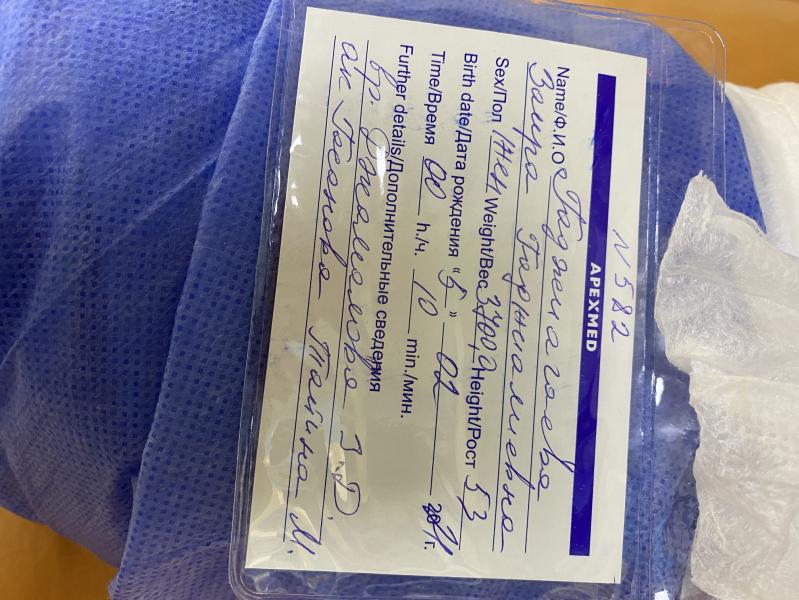 N 582
APEXMED
Name/Ф.И.О Гаджиагаева
Заира Гаржалиевна
Sex/Пол Жен Weight/Вес 3700,0 Height/Рост 53
Birth date/Дата рождения "5" 02 2021г.
Time/Время 00 h./ч. 10 min./мин.
Further details/Дополнительные сведения
вр. Джамалова З.Д.
ак Гасанова Татьяна М.